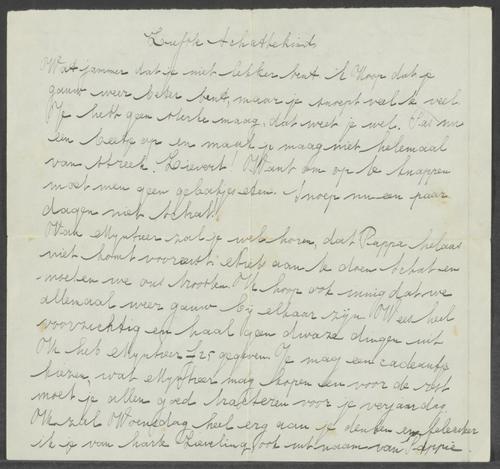 Liefste schattekind
Wat jammer dat je niet lekker bent ik hoop dat je
gauw weer beter bent, maar je snoept veel te veel
Je hebt geen sterke maag, dat weet je wel. Pas nu
een beetje op en maak je maag niet helemaal
van streek. Lieverd! Want om op te knappen
moet men geen gebakjes eten. Snoep nu een paar
dagen niet schat!
Van Mijnheer zal je wel horen, dat Pappa helaas
niet komt voorerst is er niets aan te doen schat en
moeten we ons troosten Ik hoop ook innig dat we
allemaal weer gauw bij elkaar zijn. Wees heel
voorzichtig en haal geen dwaze dingen uit
Ik heb Mijnheer ƒ25 gegeven. Je mag een cadeautje
kiezen, wat Mijnheer mag kopen en voor de rest
moet je allen goed tracteren voor je verjaardag
Ik zal Woensdag heel erg aan je denken en feliciteer
ik je van harte Lieveling, ook uit naam van Pappie